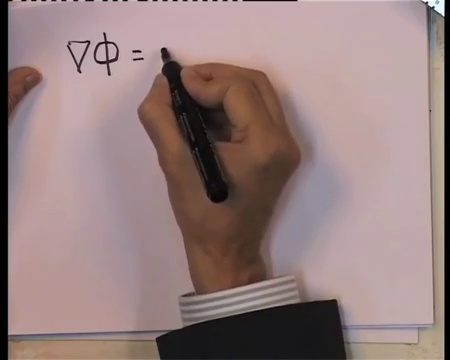 ∇Φ =